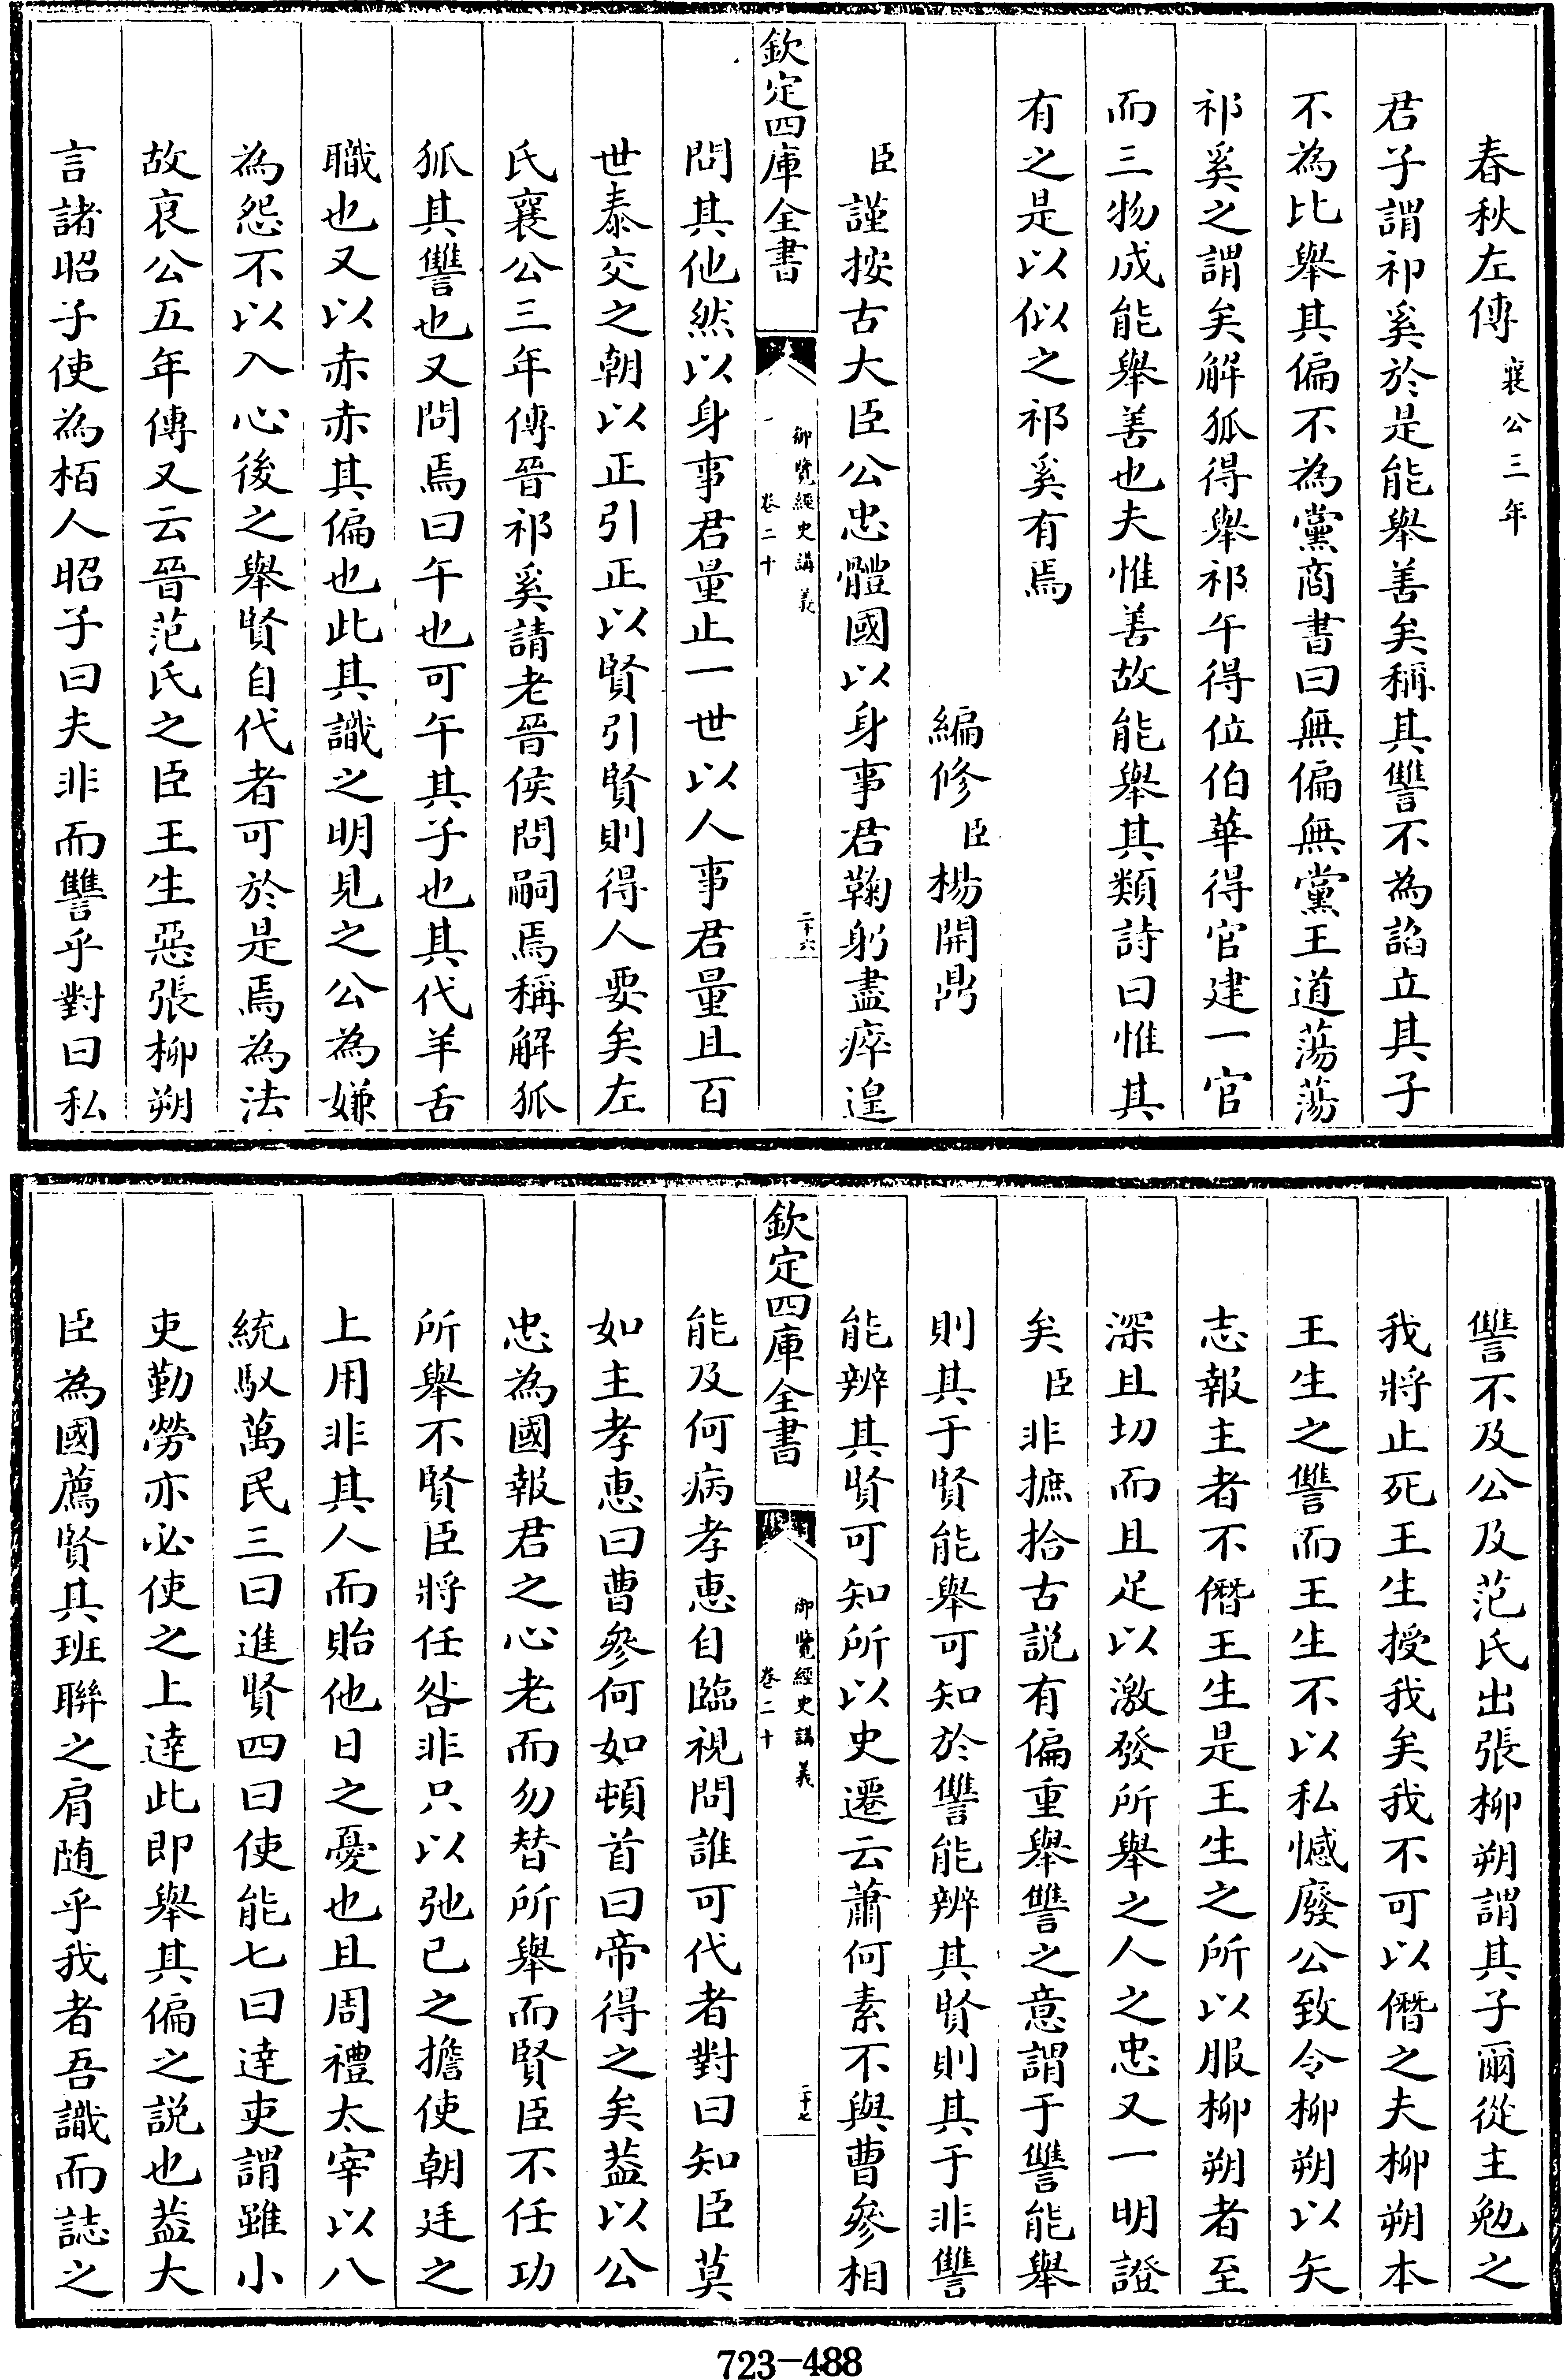 春秋左傳襄公三年
君子謂祁奚於是能舉善矣稱其讐不為謟立其子
不為比舉其偏不為黨商書曰無偏無黨王道蕩蕩
祁奚之謂矣解狐得舉祁午得位伯華得官建一官
而三物成能舉善也夫惟善故能舉其類詩曰惟其
有之是以似之祁奚有焉
編修臣楊開鼎
臣謹按古大臣公忠體國以身事君鞠躬盡瘁遑
欽定四庫全書
御覽經史講義
卷二十
二十六
問其他然以身事君量止一世以人事君量且百
世泰交之朝以正引正以賢引賢則得人要矣左
氏襄公三年傳晉祁奚請老晉侯問嗣焉稱解狐
狐其讐也又問焉曰午也可午其子也其代羊舌
職也又以赤赤其偏也此其識之明見之公為嫌
為怨不以入心後之舉賢自代者可於是焉為法
故哀公五年傳又云晉范氏之臣王生惡張柳朔
言諸昭子使為栢人昭子曰夫非而讐乎對曰私
讐不及公及范氏出張柳朔謂其子爾從主勉之
我將止死王生授我矣我不可以僭之夫柳朔本
王生之讐而王生不以私憾廢公致令柳朔以矢
志報主者不僭王生是王生之所以服柳朔者至
深且切而且足以激發所舉之人之忠又一明證
矣臣非摭拾古説有偏重舉讐之意謂于讐能舉
則其于賢能舉可知於讐能辨其賢則其于非讐
能辨其賢可知所以史遷云蕭何素不與曹參相
欽定四庫全書
御覽經史講義
卷二十
二十七
能及何病孝惠自臨視問誰可代者對曰知臣莫
如主孝惠曰曹參何如頓首曰帝得之矣葢以公
忠為國報君之心老而勿替所舉而賢臣不任功
所舉不賢臣將任咎非只以弛已之擔使朝廷之
上用非其人而貽他日之憂也且周禮太宰以八
統馭萬民三曰進賢四曰使能七曰達吏謂雖小
吏勤勞亦必使之上達此即舉其偏之説也葢大
臣為國薦賢其班聯之肩随乎我者吾識而誌之
723-488